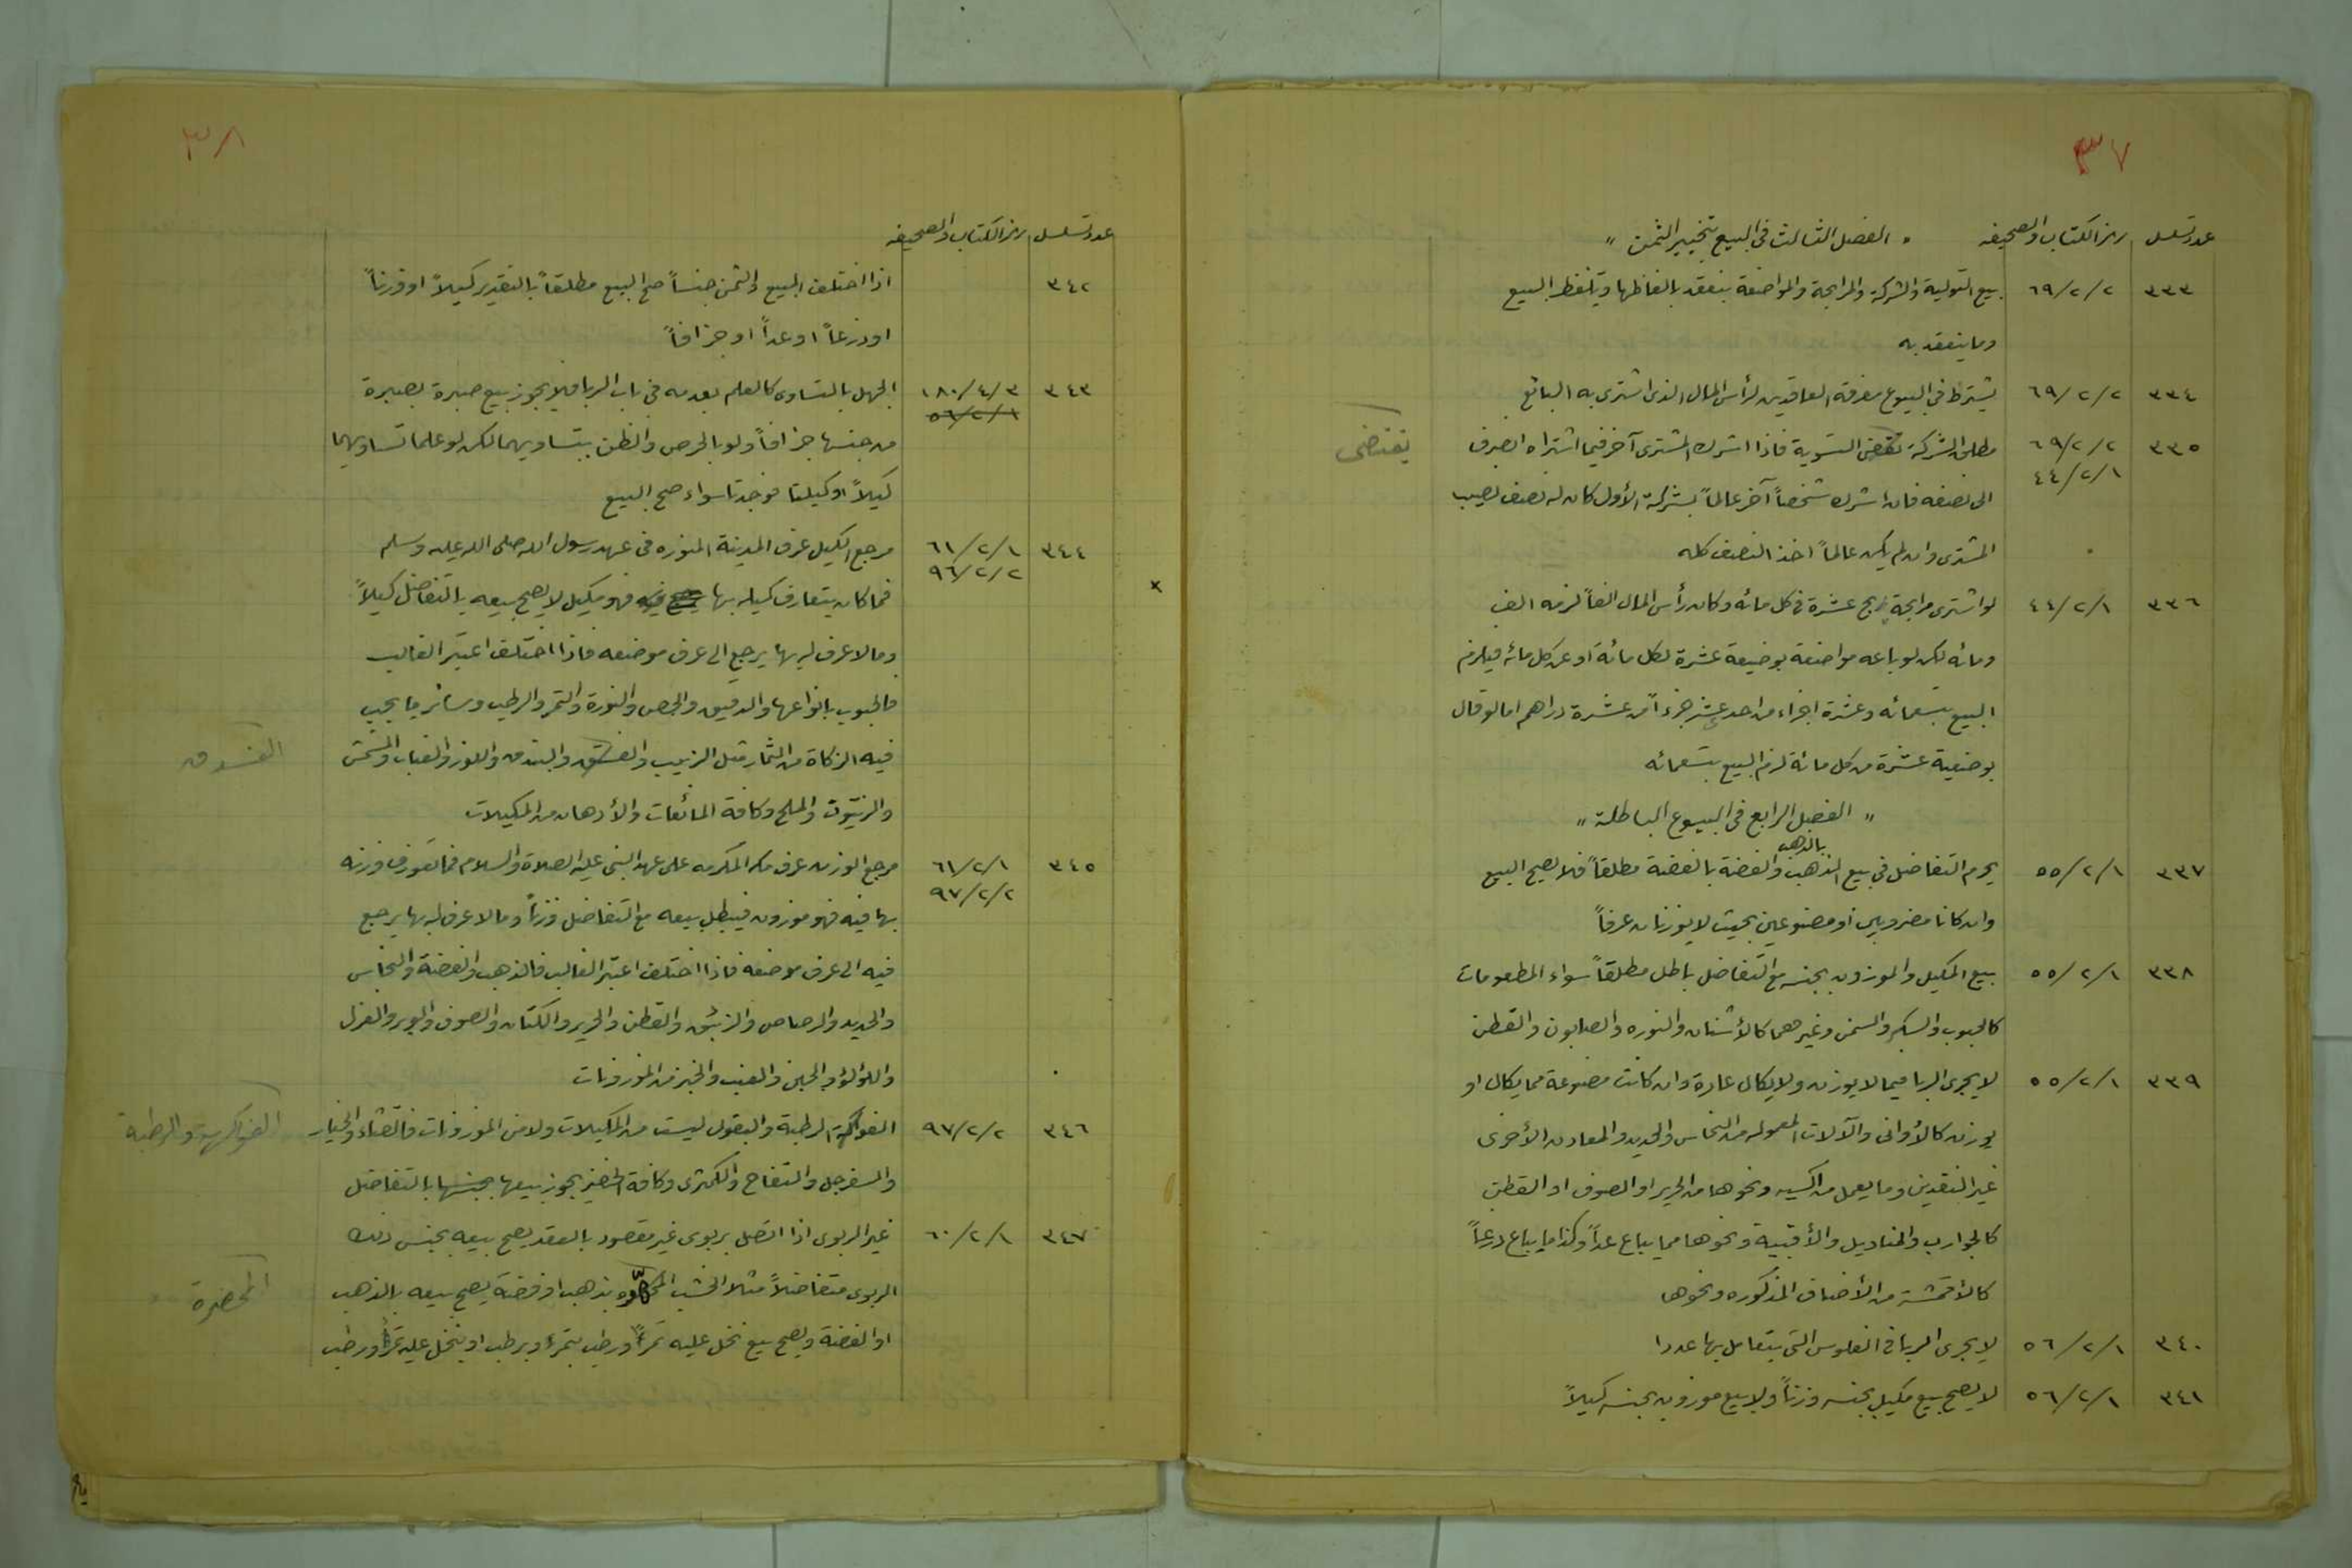 ٣٧
عدد تسلسل رمز الكتاب والصحيفه " الفصل الثالث في البيع بتخيير الثمن "
٣٣٣ ٦٩/٢/٢ بيع التولية والشركة والمرابحة والمواضعة ينعقد بالفاظها وبلفظ البيع
وما ينعقد به
٣٣٤ ٦٩/٢/٢ يشترط في البيوع معرفة العاقدين لرأس المال الذي اشترى به البائع
٣٣٥ ٦٩/٢/٢ مطلق الشركة تقتضي التسوية فاذا اشرك المشتري آخر فيما اشتراه انصرف يقتضي
٤٤/٢/١ الى نصفه فان اشرك شخصاً آخر عالماً بشركة الأول كان له نصف نصيب
المشتري وان لم يكن عالماً اخذ النصف كله
٣٣٦ ٤٤/٢/١ لو اشترى مرابحة بربح عشرة في كل مائه وكان رأس المال الفاً لزمه الف
ومائه لكن لو باعه مواضعة بوضيعة عشرة لكل مائة او عن كل مائه فيلزم
البيع بتسعمائه وعشرة اجزاء من احد عشر جزءاً من عشرة دراهم اما لو قال
بوضيعة عشرة من كل مائة لزم البيع بتسعمائه
" الفصل الرابع في البيوع الباطلة "
٣٣٧ ٥٥/٢/١ يحرم التفاضل في بيع الذهب بالذهب والفضة بالفضة مطلقاً فلا يصح البيع
وان كانا مضروبين او مصنوعين بحيث لا يوزنان عرفاً
٣٣٨ ٥٥/٢/١ بيع المكيل والموزون بجنسه مع التفاضل باطل مطلقاً سواء المطعومات
كالحبوب والسكر والسمن وغيرهما كالأشنان والنوره والصابون والقطن
٣٣٩ ٥٥/٢/١ لا يجري الربا فيما لا يوزن ولا يكال عادة وان كانت مصنوعة مما يكال او
يوزن كالأواني والآلات المعموله من النحاس والحديد والمعادن الأخرى
غير النقدين وما يعمل من اكسيه ونحوها من الحرير او الصوف او القطن
كالجوارب والمناديل والأقبية ونحوها مما يباع عداً وكذا ما يباع ذرعاً
كالأقمشة من الأصناف المذكوره ونحوها
٣٤٠ ٥٦/٢/١ لا يجري الربا في الفلوس التي يتعامل بها عددا
٣٤١ ٥٦/٢/١ لا يصح بيع مكيل بجنسه وزناً ولا بيع موزون بجنسه كيلاً
٣٨
عدد تسلسل رمز الكتاب والصحيفه
٣٤٢ اذا اختلف المبيع والثمن جنساً صح البيع مطلقاً بالتقدير كيلاً او وزناً
او ذرعاً او عداً او جزافاً
٣٤٣ ١٨٠/٤/٣ الجهل بالتساوي كالعلم بعدمه في باب الربا فلا يجوز بيع صبرة بصبرة
٥٦/٢/١
من جنسها جزافاً ولو بالخرص والظن بتساويهما لكن لو علما تساويهما
كيلاً او كيلتا فوجدتا سواء صح البيع
٣٤٤ ٦١/٢/١ مرجع الكيل عرف المدينة المنوره في عهد رسول الله صلى الله عليه وسلم
٩٦/٢/٢
فما كان يتعارف كيله بها فهو مكيل لا يصح بيعه بالتفاضل كيلاً
وما لا عرف له بها يرجع الى عرف موضعه فاذا اختلف اعتبر الغالب
فالحبوب بانواعها والدقيق والجص والنورة والتمر والرطب وسائر ما يجب
فيه الزكاة من الثمار مثل الزبيب والفستق والبندق واللوز والعناب والمشمش الفستق
والزيتون والملح وكافة المائعات والأدهان من المكيلات
٣٤٥ ٦١/٢/١ مرجع الوزن عرف مكه المكرمه على عهد النبي عليه الصلاة والسلام فما تعورف وزنه
٩٧/٢/٢
بها فيه فهو موزون فيبطل بيعه مع التفاضل وزناً وما لا عرف له بها يرجع
فيه الى عرف موضعه فاذا اختلف اعتبر الغالب فالذهب والفضة والنحاس
والحديد والرصاص والزئبق والقطن والحرير والكتان والصوف والوبر والغزل
واللؤلؤ والجبن والعنب والخبز من الموزونات
٣٤٦ ٩٧/٢/٢ الفواكه الرطبة والبقول ليست من المكيلات ولا من الموزونات فالقثاء والخيار الفواكه والرطبة
والسفرجل والتفاح والكمثرى وكافة الخضر يجوز بيعها بجنسها بالتفاضل
٣٤٧ ٦٠/٢/١ غير الربوي اذا اتصل بربوي غير مقصود بالعقد يصح بيعه بجنس ذلك
الربوي متفاضلاً مثلا الخشب بذهب او فضة يصح بيعه بالذهب
او الفضة ويصح بيع نخل عليه تمر او رطب بتمر او برطب او بنخل عليه تمر او رطب